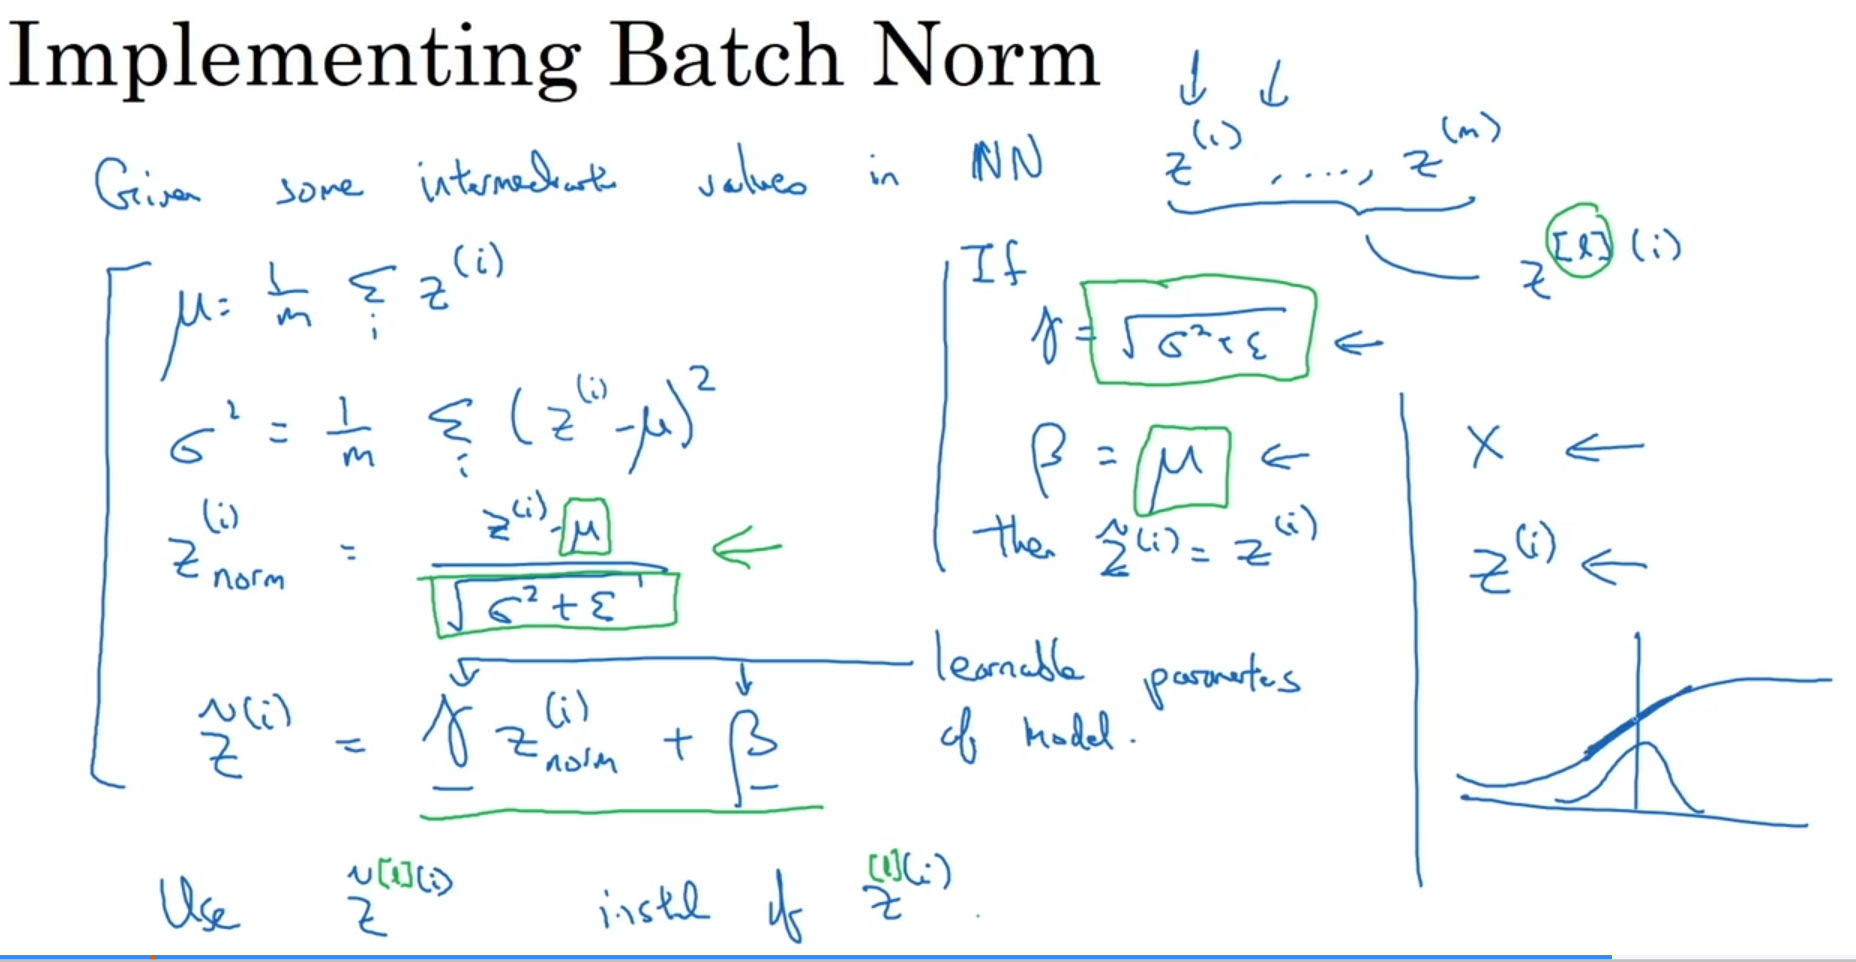 Implementing Batch Norm
Given some intermediate values in NN z^(i), ...., z^(m)
z^[l](i)
μ = 1/m Σ_i z^(i)
σ² = 1/m Σ_i (z^(i) - μ)²
z^(i)_norm = (z^(i) - μ) / √(σ² + ε) ←
z̃^(i) = γ z^(i)_norm + β
learnable parameters
of model.
If
γ = √(σ² + ε) ←
β = μ ←
then z̃^(i) = z^(i)
X ←
z^(i) ←
Use z̃^[l](i) instead of z^[l](i).